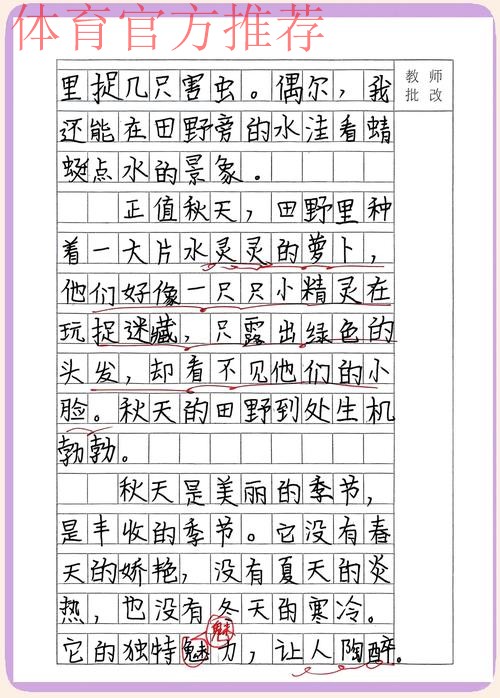 体育官方推荐
教师
批改
里捉几只害虫。偶尔，我
还能在田野旁的水洼看蜻
蜓点水的景象。
正值秋天，田野里种
着一大片水灵灵的萝卜，
他们好像一只只小精灵在
玩捉迷藏，只露出绿色的
头发，却看不见他们的小
脸。秋天的田野到处生机
勃勃。
秋天是美丽的季节，
是丰收的季节。它没有春
天的娇艳，没有夏天的炎
热，也没有冬天的寒冷。
魅
它的独特魅力，让人陶醉。